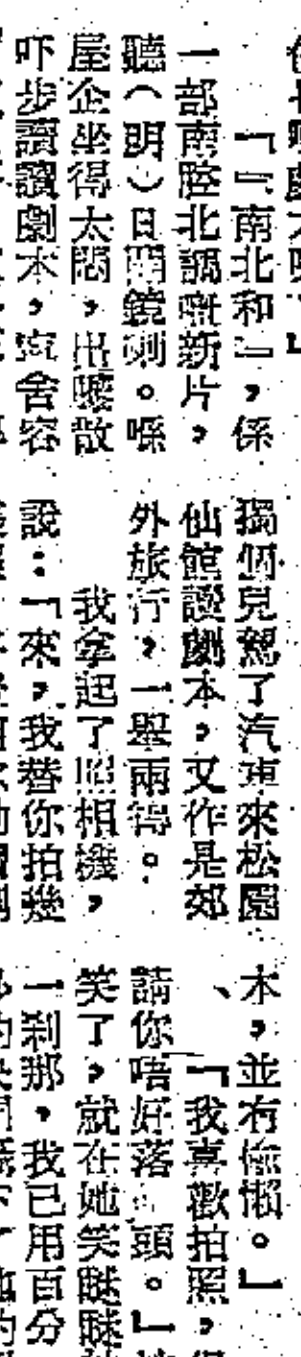 「『南北和』，係
一部南腔北調嘅新片，
聽（明）日開鏡喇。喺
屋企坐得太悶，出嚟散
吓步讀讀劇本，舍容
獨個兒駕了汽車來松園
仙館讀劇本，又作是郊
外旅行，一舉兩得。
我拿起了照相機，
說：「來，我替你拍幾
本，並有偷懶。」
、「我喜歡拍照，
請你唔好落頭。」
笑了，就在她笑瞇瞇
一刹那，我已用百分